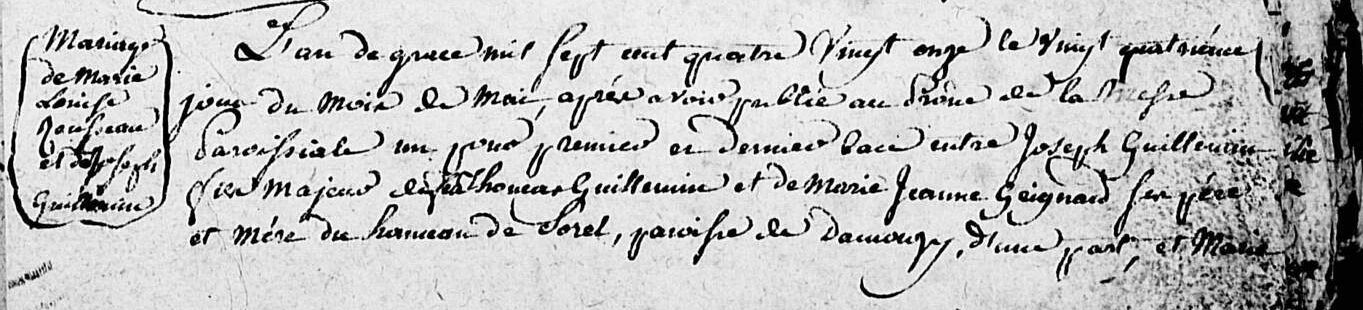 Mariage
de Marie
Louise
Rousseau
et de Joseph
Guillemin
L'an de grace mil sept cent quatre vingt onze le vingt quatriéme
jour du mois de Mai, aprés avoir publié au Prône de la Messe
Paroissiale un pour premier et dernier banc entre Joseph Guillemin
fils majeur de feu Thomas Guillemin et de Marie Jeanne Geignard ses pére
et mére du hameau de Sorel, paroisse de, d'une part, et Marie